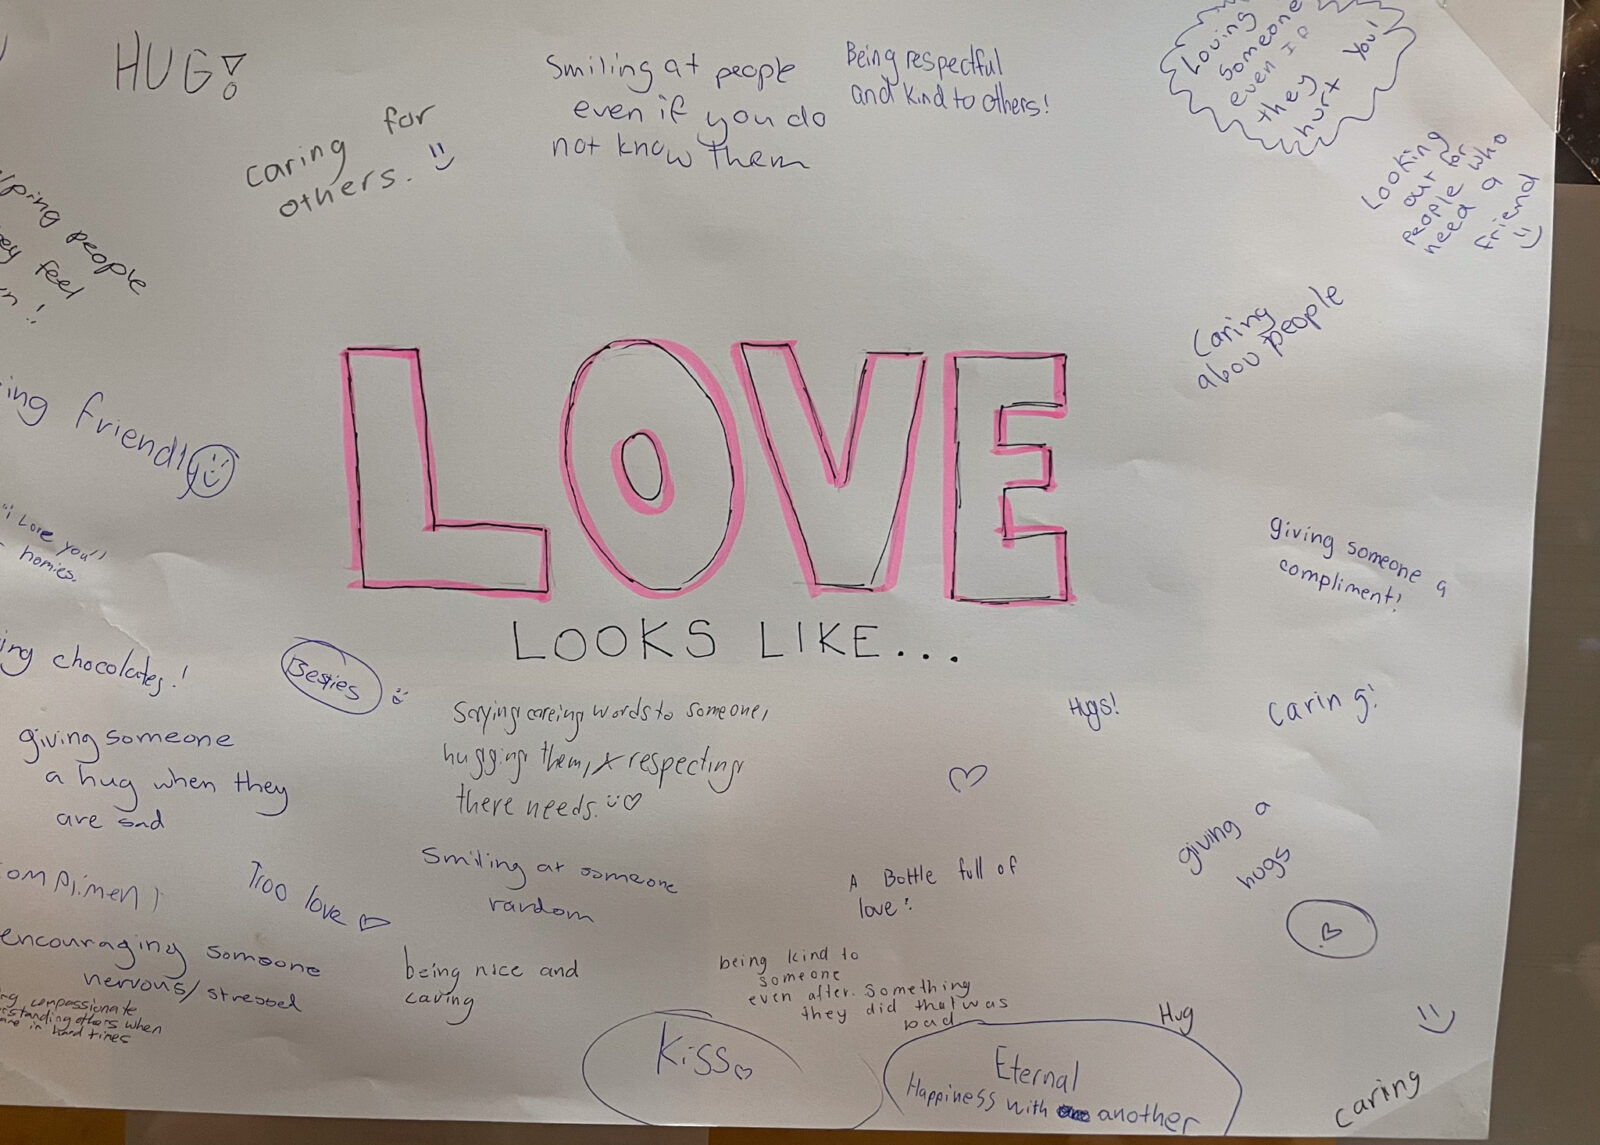 HUG!
Smiling at people
even if you do
not know them
Being respectful
and kind to others!
Loving
someone
even IF
they
hurt you!
caring for
others.
Looking
out for
people who
need a
friend
people
feel
Caring
abou people
LOVE
LOOKS LIKE...
friend!
"i Love you"
homies.
giving someone a
compliment!
chocolates!
Besties
Saying careing words to someone,
hugging them, respecting
there needs.
Hugs!
caring!
giving someone
a hug when they
are sad
giving a
hugs
Smiling at someone
random
Troo love
A Bottle full of
love!
encouraging someone
nervous/stressed
being nice and
caring
being kind to
someone
even after something
they did that was
bad
compassionate
others when
in hard times
Hug
Kiss
Eternal
Happiness with another
caring